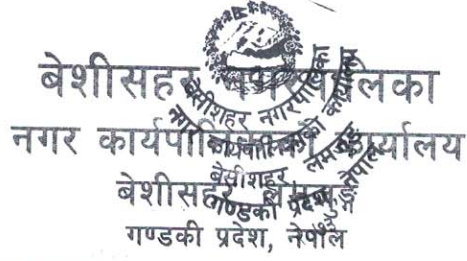 बेशीसहर नगरपालिका
नगर कार्यपालिकाको कार्यालय
बेशीसहर, लमजुङ
गण्डकी प्रदेश, नेपाल
बेसीशहर नगरपालिका
नगर कार्यपालिकाको कार्यालय
बेसीशहर लमजुङ
गण्डकी प्रदेश, नेपाल